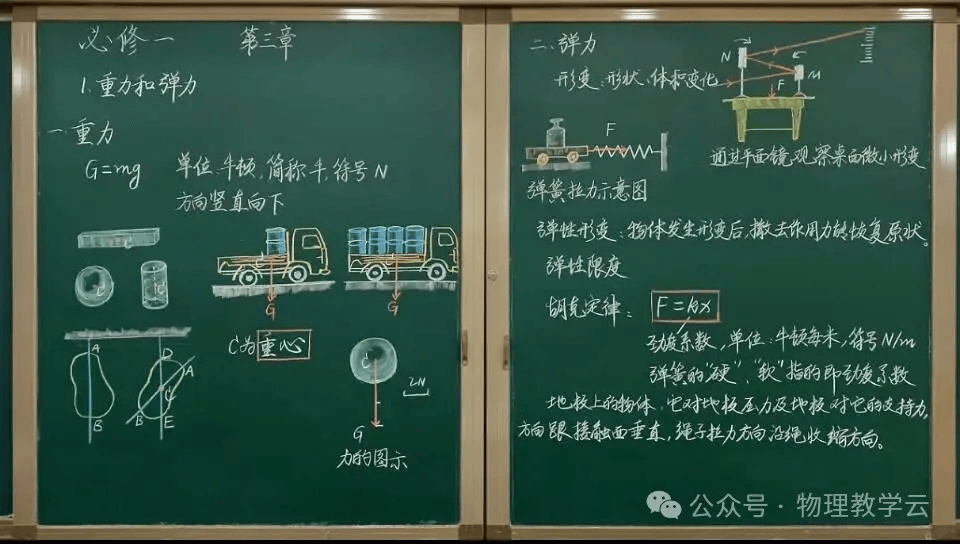 必修一 第三章
1.重力和弹力
一.重力
G=mg 单位:牛顿,简称:牛,符号N
方向竖直向下
C
C
C
A
B
D
A
C
B
E
C
G
C
G
C为重心
C
2N
G
力的图示
二、弹力
形变:形状、体积变化
N
M
F
通过平面镜观察桌面微小形变
F
弹簧拉力示意图
弹性形变:物体发生形变后,撤去作用力能恢复原状。
弹性限度
胡克定律: F=kx
劲度系数,单位:牛顿每米,符号N/m
弹簧的"硬"、"软"指的即劲度系数
地板上的物体,它对地板压力及地板对它的支持力,
方向跟接触面垂直,绳子拉力方向沿绳收缩方向。
公众号·物理教学云